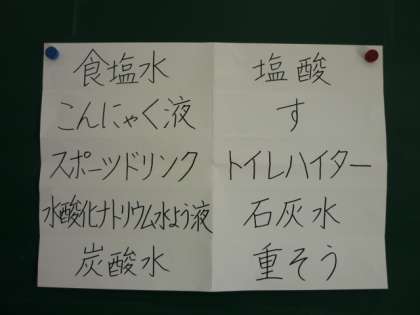 食塩水
こんにゃく液
スポーツドリンク
水酸化ナトリウム水よう液
炭酸水
塩酸
す
トイレハイター
石灰水
重そう